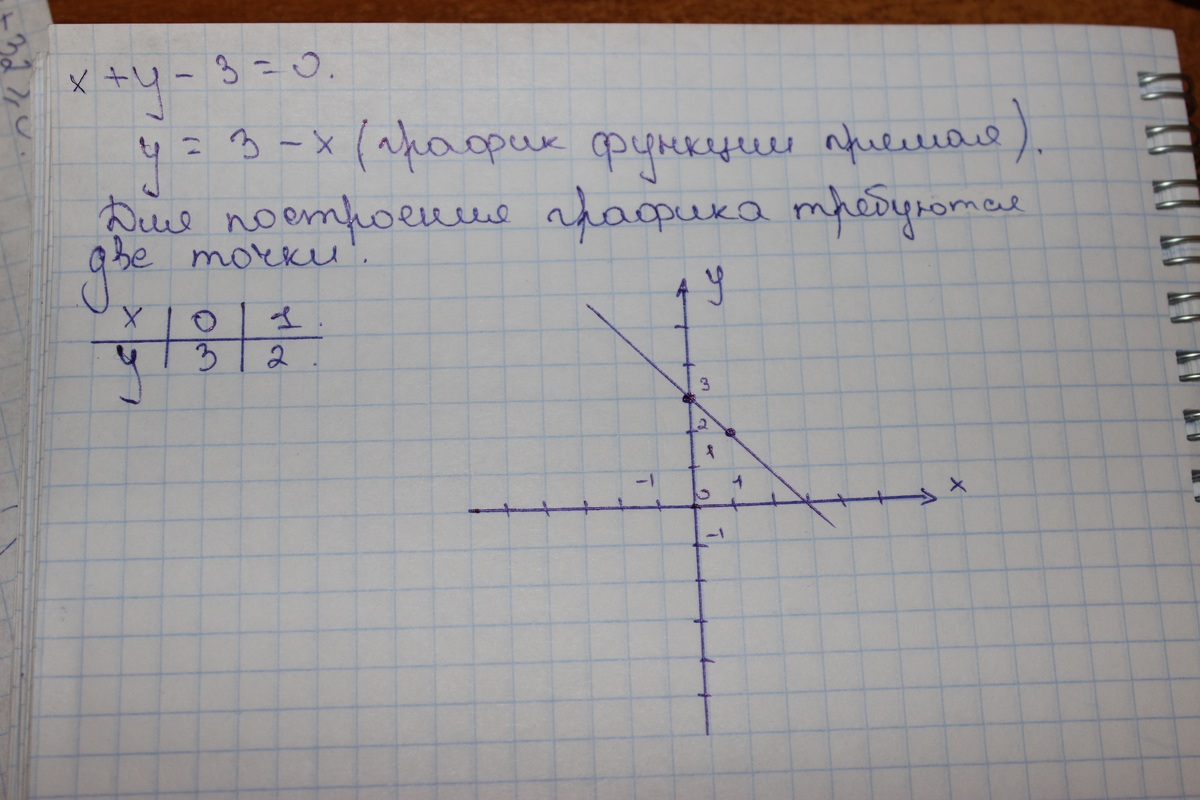 x + y - 3 = 0.
y = 3 - x (график функции прямая).
Для построения графика требуются
две точки.
x 0 1.
y 3 2.
y
3
2
1
-1 0 1 x
-1